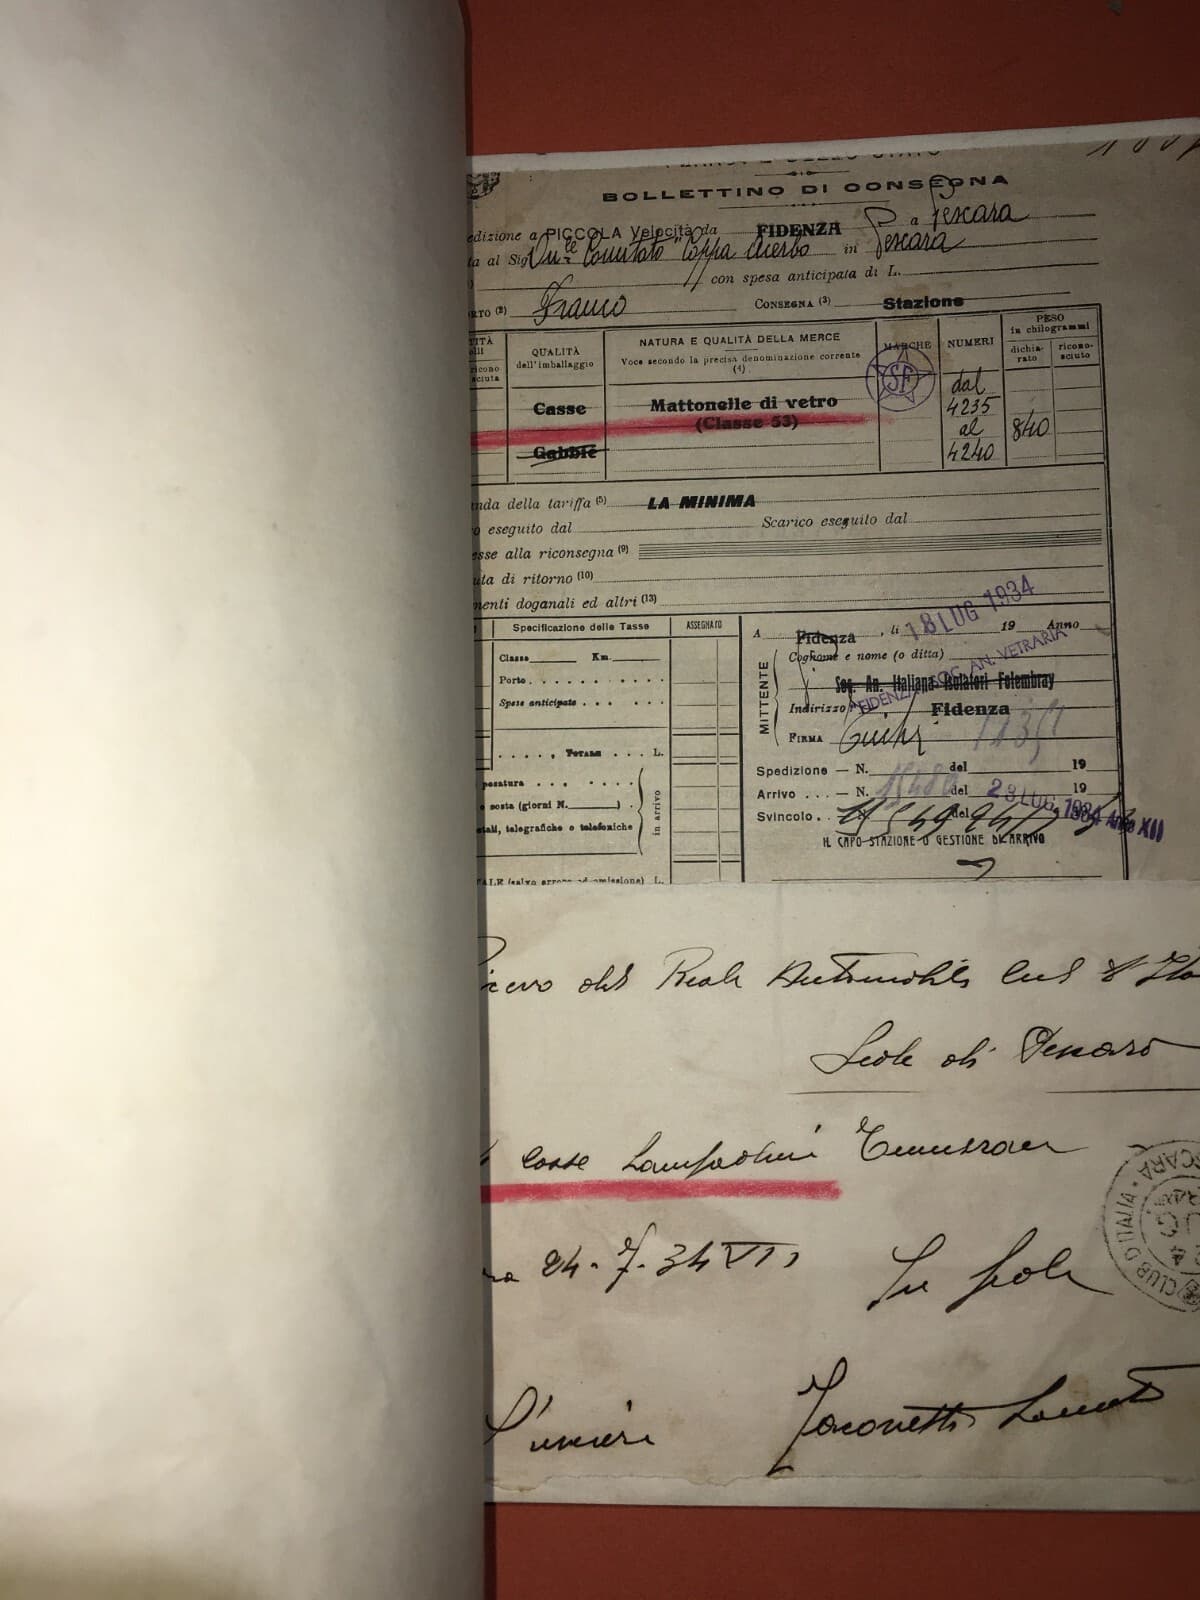 BOLLETTINO DI CONSEGNA
edizione a PICCOLA Velocità da FIDENZA a Pescara
ta al Sig. On.le Comitato "Coppa Acerbo in Pescara
con spesa anticipata di L.
RTO (2) Franco CONSEGNA (3) Stazione
QUALITÀ dell'imballaggio
NATURA E QUALITÀ DELLA MERCE
Voce secondo la precisa denominazione corrente (4)
MARCHE
NUMERI
PESO in chilogrammi
dichiarato
riconosciuto
Casse
Mattonelle di vetro
(Classe 53)
SF
dal
4235
al
4240
840
Gabbie
nda della tariffa (5) LA MINIMA
o eseguito dal Scarico eseguito dal
esse alla riconsegna (9)
uta di ritorno (10)
menti doganali ed altri (13)
Specificazione delle Tasse
ASSEGNATO
Classe Km.
Porto
Spese anticipate
TOTALE L.
posta (giorni N. )
tali, telegrafiche o telefoniche
in arrivo
TALE (salvo errore ed omissione) L.
A Fidenza, li 18 LUG 1934 19 Anno
MITTENTE
Cognome e nome (o ditta)
Soc. An. Italiana Isolatori Folembray
FIDENZA SOC. AN. VETRARIA
Indirizzo: Fidenza
FIRMA
Spedizione — N. del 19
Arrivo — N. del 23 LUG. 1934 Anno XII 19
Svincolo
IL CAPO STAZIONE O GESTIONE DI ARRIVO
Reale Automobile Club d'Ita
Sede di Pescara
casse Lampadini
24-7-34 XII
In fede
CLUB D'ITALIA